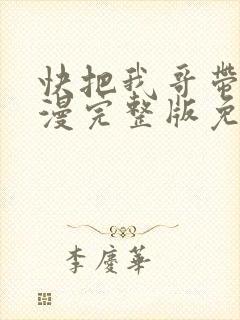 快把我哥带
漫完整版免
李庆华